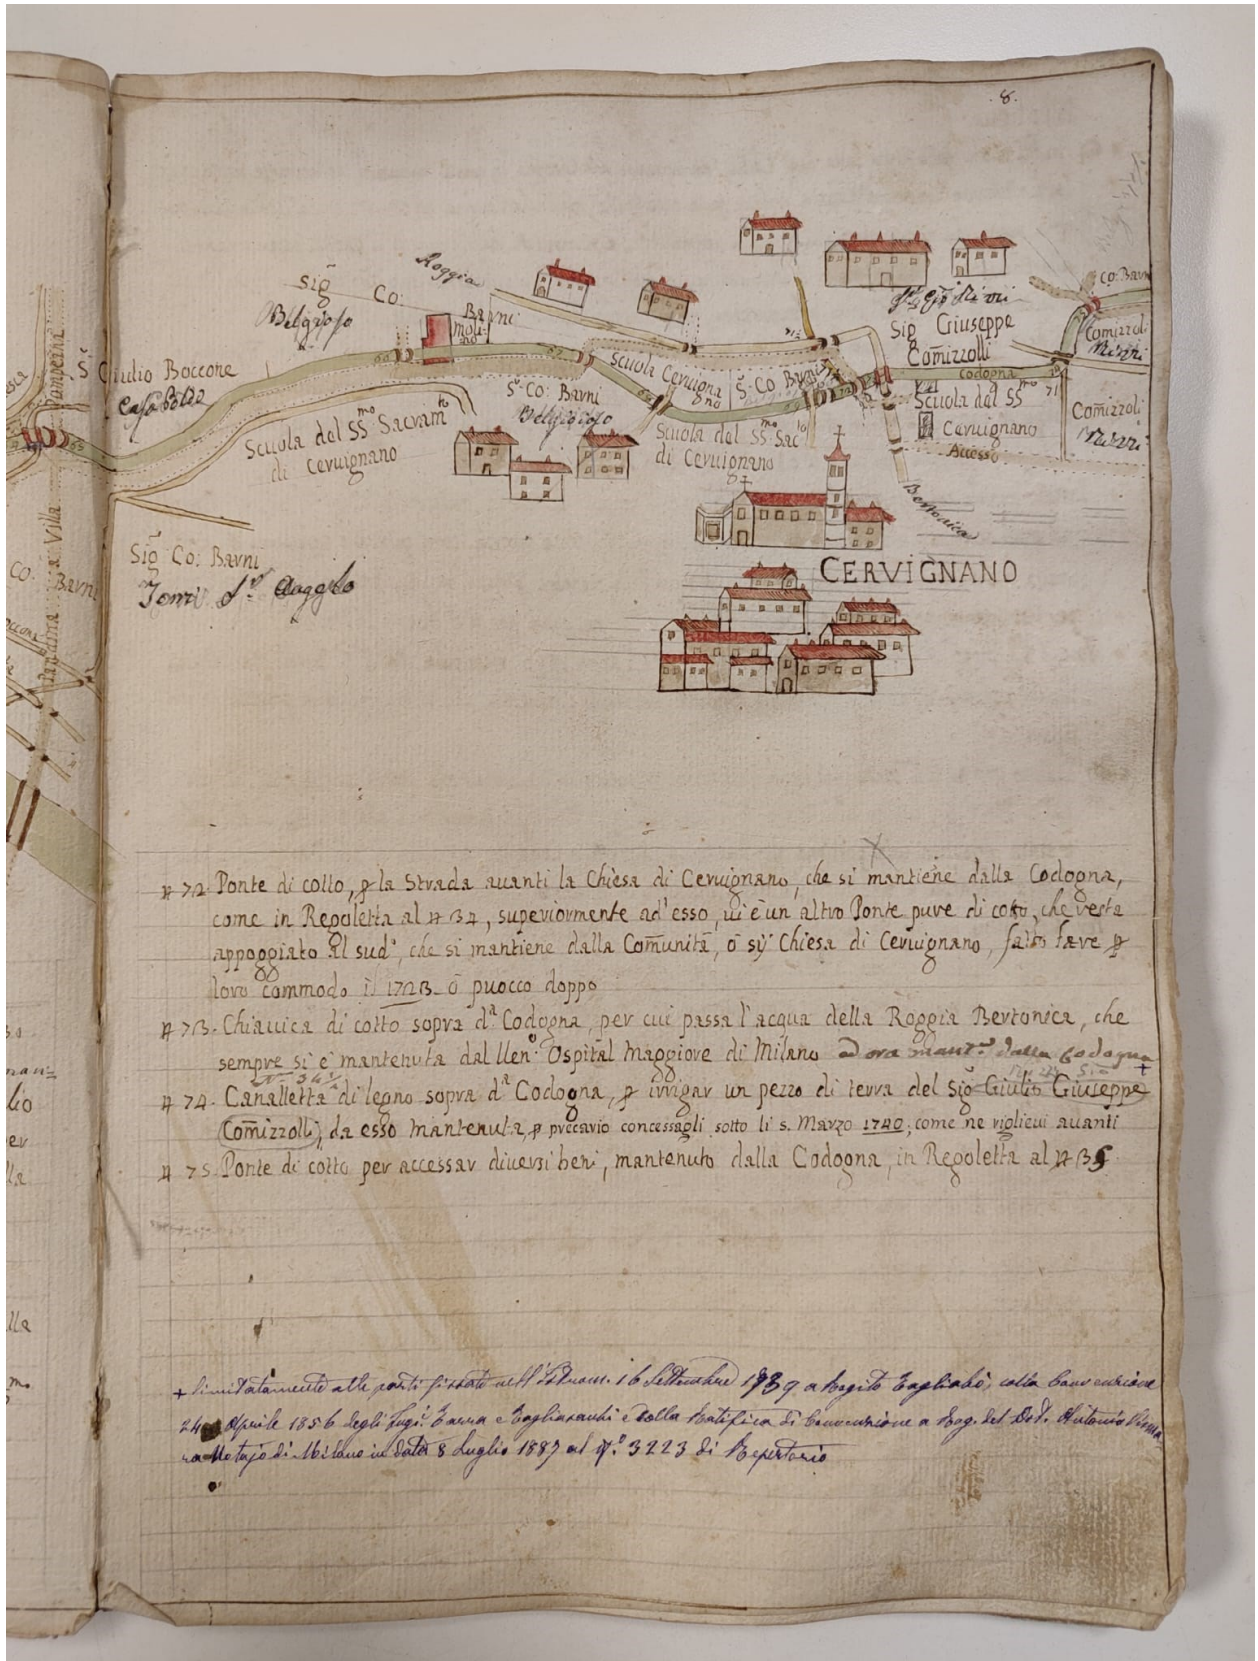 8.
Roggia
Sig Co: Barni
Belgioso
Molino
S. Giulio Boccone
Casa Polli
S. Co: Barni
Belgioioso
Scuola Cervignano
S. Co Barni
Scuola del SS.mo Sacram.to
di Cervignano
Scuola del SS.mo Sac.to
di Cervignano
Sig Giuseppe
Comizzolli
Codogna
Scuola del SS.mo
Cervignano
Accesso
Co: Barni
Comizzoli
Rizzi
Comizoli
Rizzi
Bertonica
Sig Co: Barni
CERVIGNANO
Co: Barni
N 72. Ponte di cotto, p la Strada auanti la Chiesa di Cervignano, che si mantiene dalla Codogna,
come in Regoletta al N 34, superiormente ad'esso, ui è un altro Ponte pure di cotto, che resta
appoggiato al sud.o, che si mantiene dalla Comunità, ò sij Chiesa di Cervignano, fatto fare p
loro commodo il 1723. ò puocco doppo
N 73. Chiauica di cotto sopra d.a Codogna, per cui passa l'acqua della Roggia Bertonica, che
sempre si è mantenuta dal Uen.o Ospital Maggiore di Milano ed ora mant.a dalla Codogna
+
N 74. Canalletta di legno sopra d.a Codogna, p irrigar un pezzo di terra del Sig Giulio Giuseppe
Comizzolli, da esso mantenuta, p precario concessagli sotto li 5. Marzo 1740, come ne riglieui auanti
N 75. Ponte di cotto per accessar diuersi beni, mantenuto dalla Codogna, in Regoletta al N 35
+ limitatamente alle parti fissate nell'Istrom. 16 Settembre 1739 a Rogito Tagliabò, colla Convenzione
24 Aprile 1856 degli Ing.i Tarra e Tagliasacchi e colla Ratifica di Convenzione a Rog. del Dott. Antonio
Notajo di Milano in data 8 Luglio 1887 al N.o 3223 di Repertorio